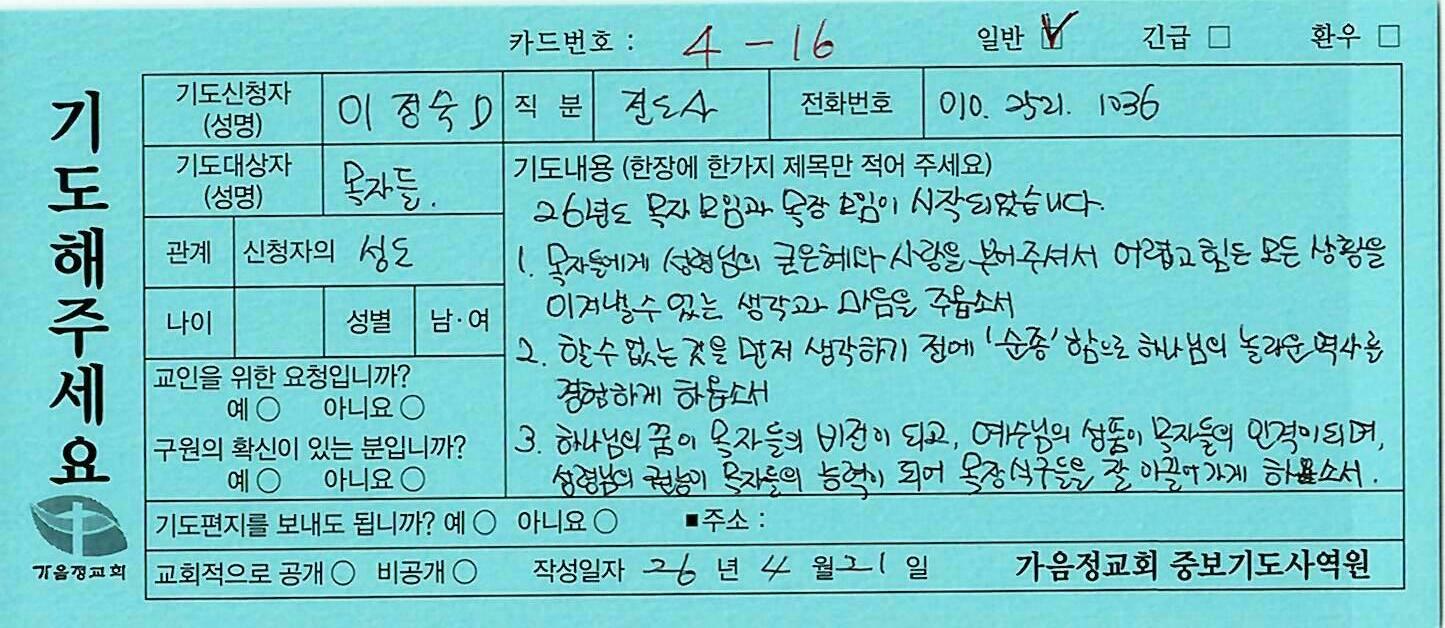 카드번호 : 4 - 16 일반 ☑ 긴급 □ 환우 □
기도해주세요
기도신청자 (성명) 이정숙D 직 분 전도사 전화번호 010. 2521. 1036
기도대상자 (성명) 목자들.
관계 신청자의 성도
나이 성별 남·여
교인을 위한 요청입니까?
예 ○ 아니요 ○
구원의 확신이 있는 분입니까?
예 ○ 아니요 ○
기도내용 (한장에 한가지 제목만 적어 주세요)
26년도 목자 모임과 목장 모임이 시작되었습니다.
1. 목자들에게 성령님의 큰은혜와 사랑을 부어주셔서 어렵고 힘든 모든 상황을
이겨낼수 있는 생각과 마음을 주옵소서
2. 할수 없는 것을 먼저 생각하기 전에 '순종'함으로 하나님의 놀라운 역사를
경험하게 하옵소서
3. 하나님의 꿈이 목자들의 비전이 되고, 예수님의 성품이 목자들의 인격이되며,
성령님의 권능이 목자들의 능력이 되어 목장식구들을 잘 이끌어가게 하옵소서.
기도편지를 보내도 됩니까? 예 ○ 아니요 ○ ■주소 :
교회적으로 공개 ○ 비공개 ○ 작성일자 26 년 4 월 21 일 가음정교회 중보기도사역원
가음정교회